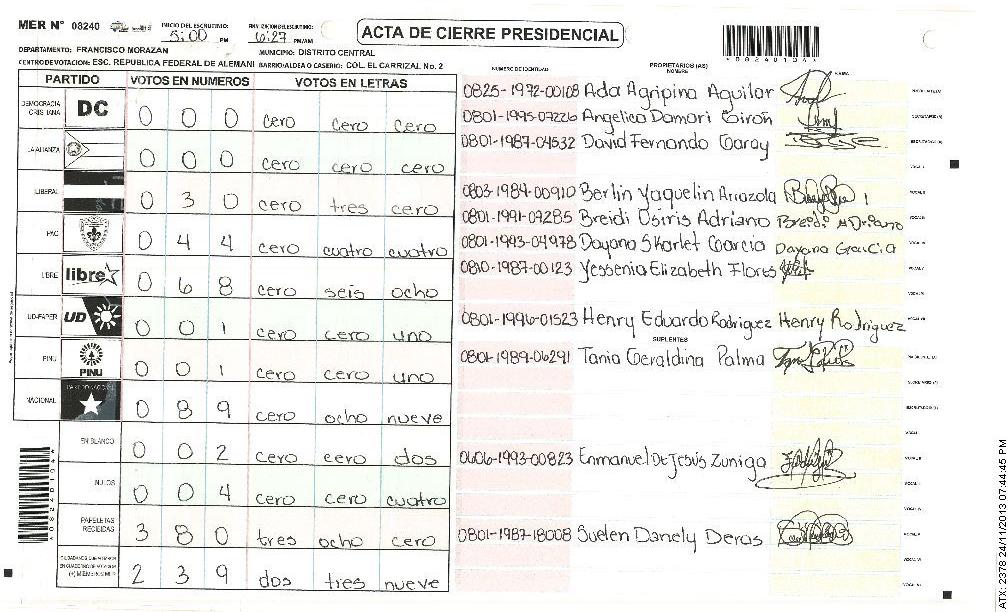 MER N° 08240
INICIO DEL ESCRUTINIO: 5:00 PM
FINALIZACION DEL ESCRUTINIO: 6:27 PM/AM
ACTA DE CIERRE PRESIDENCIAL
* 0 8 2 4 0 1 0 A *
DEPARTAMENTO: FRANCISCO MORAZAN
MUNICIPIO: DISTRITO CENTRAL
CENTRO DE VOTACION: ESC. REPUBLICA FEDERAL DE ALEMANI BARRIO/ALDEA O CASERIO: COL. EL CARRIZAL No. 2
PARTIDO VOTOS EN NUMEROS VOTOS EN LETRAS
DEMOCRACIA CRISTIANA DC 0 0 0 cero cero cero
LA ALIANZA 0 0 0 cero cero cero
LIBERAL 0 3 0 cero tres cero
PAC 0 4 4 cero cuatro cuatro
LIBRE libre 0 6 8 cero seis ocho
UD-FAPER UD 0 0 1 cero cero uno
PINU PINU 0 0 1 cero cero uno
NACIONAL PARTIDO NACIONAL 0 8 9 cero ocho nueve
EN BLANCO 0 0 2 cero cero dos
NULOS 0 0 4 cero cero cuatro
PAPELETAS RECIBIDAS 3 8 0 tres ocho cero
CIUDADANOS QUE VOTARON EN CUADERNO DE VOTACION (+) MIEMBROS MER 2 3 9 dos tres nueve
NUMERO DE IDENTIDAD PROPIETARIOS (AS) NOMBRE FIRMA
0825-1972-00108 Ada Agripina Aguilar
0801-1995-07226 Angelica Damari Giron
0801-1987-04532 David Fernando Garay
0803-1984-00910 Berlin Yaquelin Arriazola
0801-1991-09285 Breidi Osiris Adriano Breidi Adriano
0801-1993-04978 Dayana Skarlet Garcia Dayana Garcia
0810-1987-00123 Yessenia Elizabeth Flores
0801-1996-01523 Henry Eduardo Rodriguez Henry Rodriguez
SUPLENTES
0801-1989-06291 Tania Geraldina Palma
0606-1993-00823 Enmanuel De Jesús Zuniga
0801-1987-18008 Suelen Danely Deras
ATX: 2378 24/11/2013 07:44:45 PM